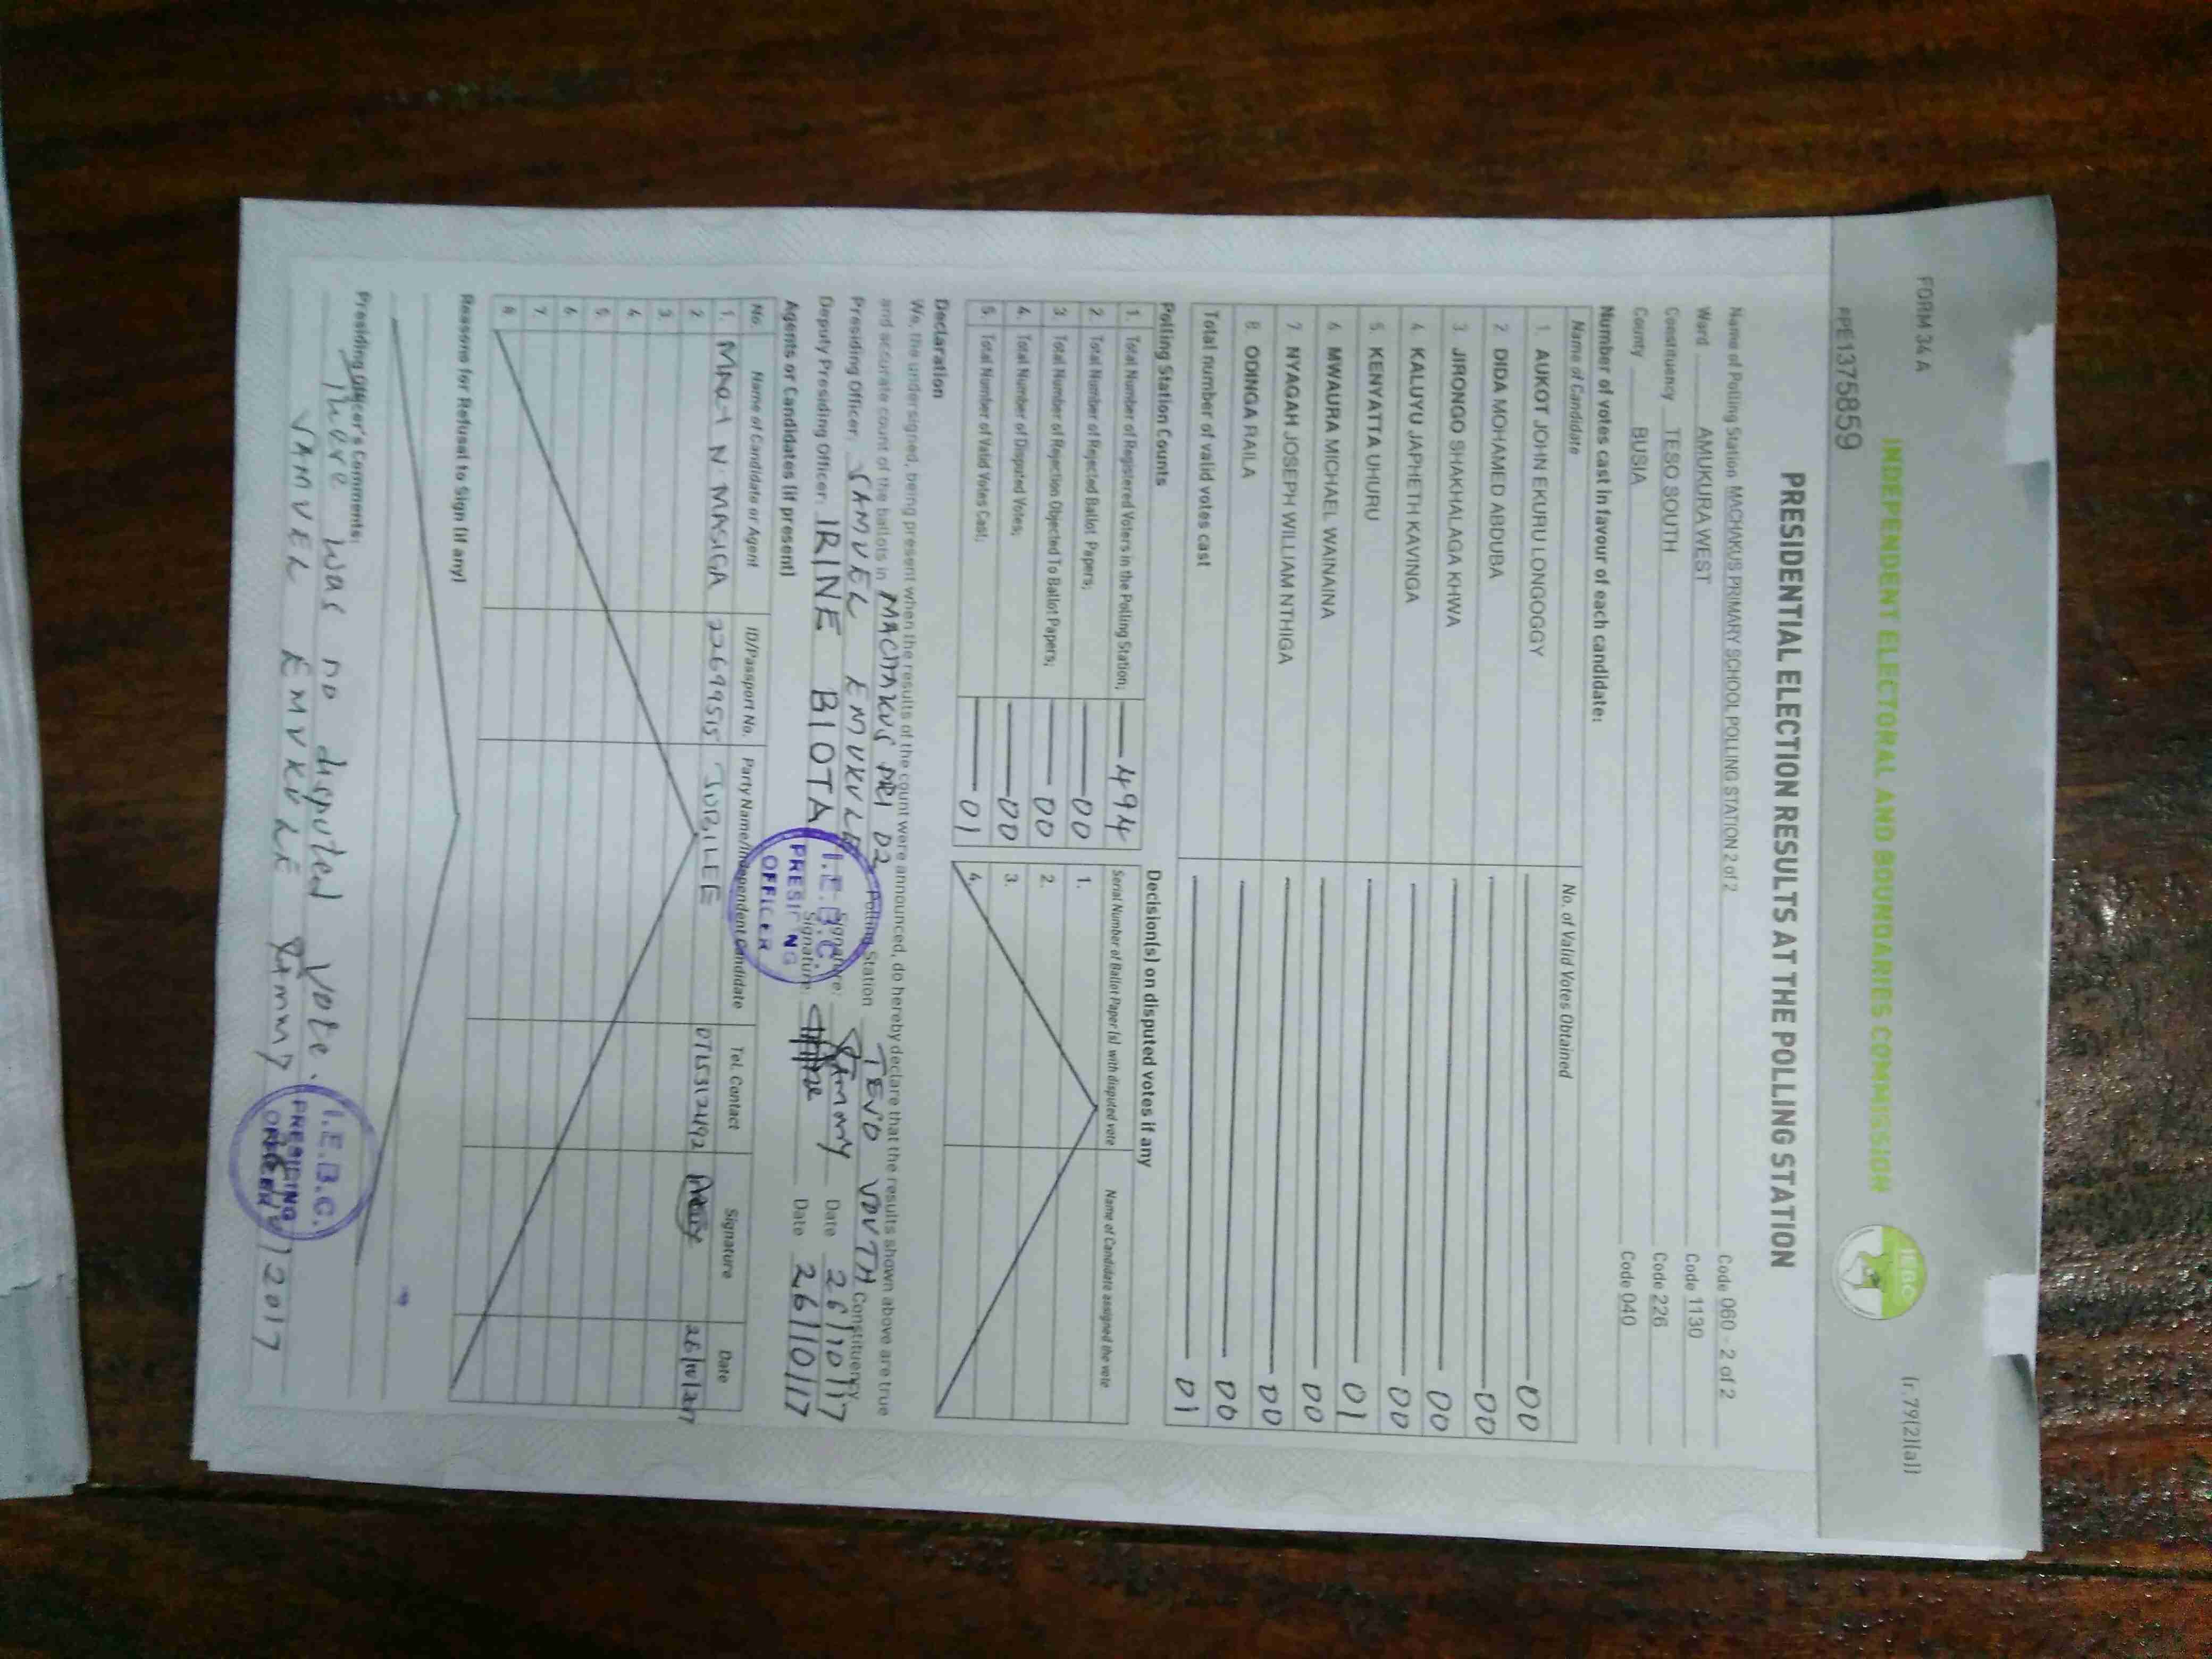 FORM 34A
(r.79(2)(a))
INDEPENDENT ELECTORAL AND BOUNDARIES COMMISSION
IEBC
PPE1375859
PRESIDENTIAL ELECTION RESULTS AT THE POLLING STATION
Name of Polling Station MACHAKUS PRIMARY SCHOOL POLLING STATION 2 of 2 Code 060 - 2 of 2
Ward AMUKURA WEST Code 1130
Constituency TESO SOUTH Code 226
County BUSIA Code 040
Number of votes cast in favour of each candidate:
Name of Candidate No. of Valid Votes Obtained
1. AUKOT JOHN EKURU LONGOGGY 00
2. DIDA MOHAMED ABDUBA 00
3. JIRONGO SHAKHALAGA KHWA 00
4. KALUYU JAPHETH KAVINGA 00
5. KENYATTA UHURU 01
6. MWAURA MICHAEL WAINAINA 00
7. NYAGAH JOSEPH WILLIAM NTHIGA 00
8. ODINGA RAILA 00
Total number of valid votes cast 01
Polling Station Counts
1. Total Number of Registered Voters in the Polling Station; 494
2. Total Number of Rejected Ballot Papers; 00
3. Total Number of Rejection Objected To Ballot Papers; 00
4. Total Number of Disputed Votes; 00
5. Total Number of Valid Votes Cast; 01
Decision(s) on disputed votes if any
Serial Number of Ballot Paper(s) with disputed vote Name of Candidate assigned the vote
1.
2.
3.
4.
Declaration
We, the undersigned, being present when the results of the count were announced, do hereby declare that the results shown above are true
and accurate count of the ballots in MACHAKUS PRI 02 Polling Station TEVO VOUTH Constituency
Presiding Officer: SAMUEL EMUKULE Signature: Date 26/10/17
Deputy Presiding Officer: IRINE BIOTA Signature: Date 26/10/17
I.E.B.C.
PRESIDING
OFFICER
Agents or Candidates (if present)
No. Name of Candidate or Agent ID/Passport No. Party Name/Independent Candidate Tel. Contact Signature Date
1. N MASIGA 22699515 JUBILEE 0715312492 26/10/2017
2.
3.
4.
5.
6.
7.
8.
Reasons for Refusal to Sign (if any)
Presiding Officer's Comments:
There was no disputed vote.
SAMUEL EMUKULE 2017
I.E.B.C.
PRESIDING
OFFICER